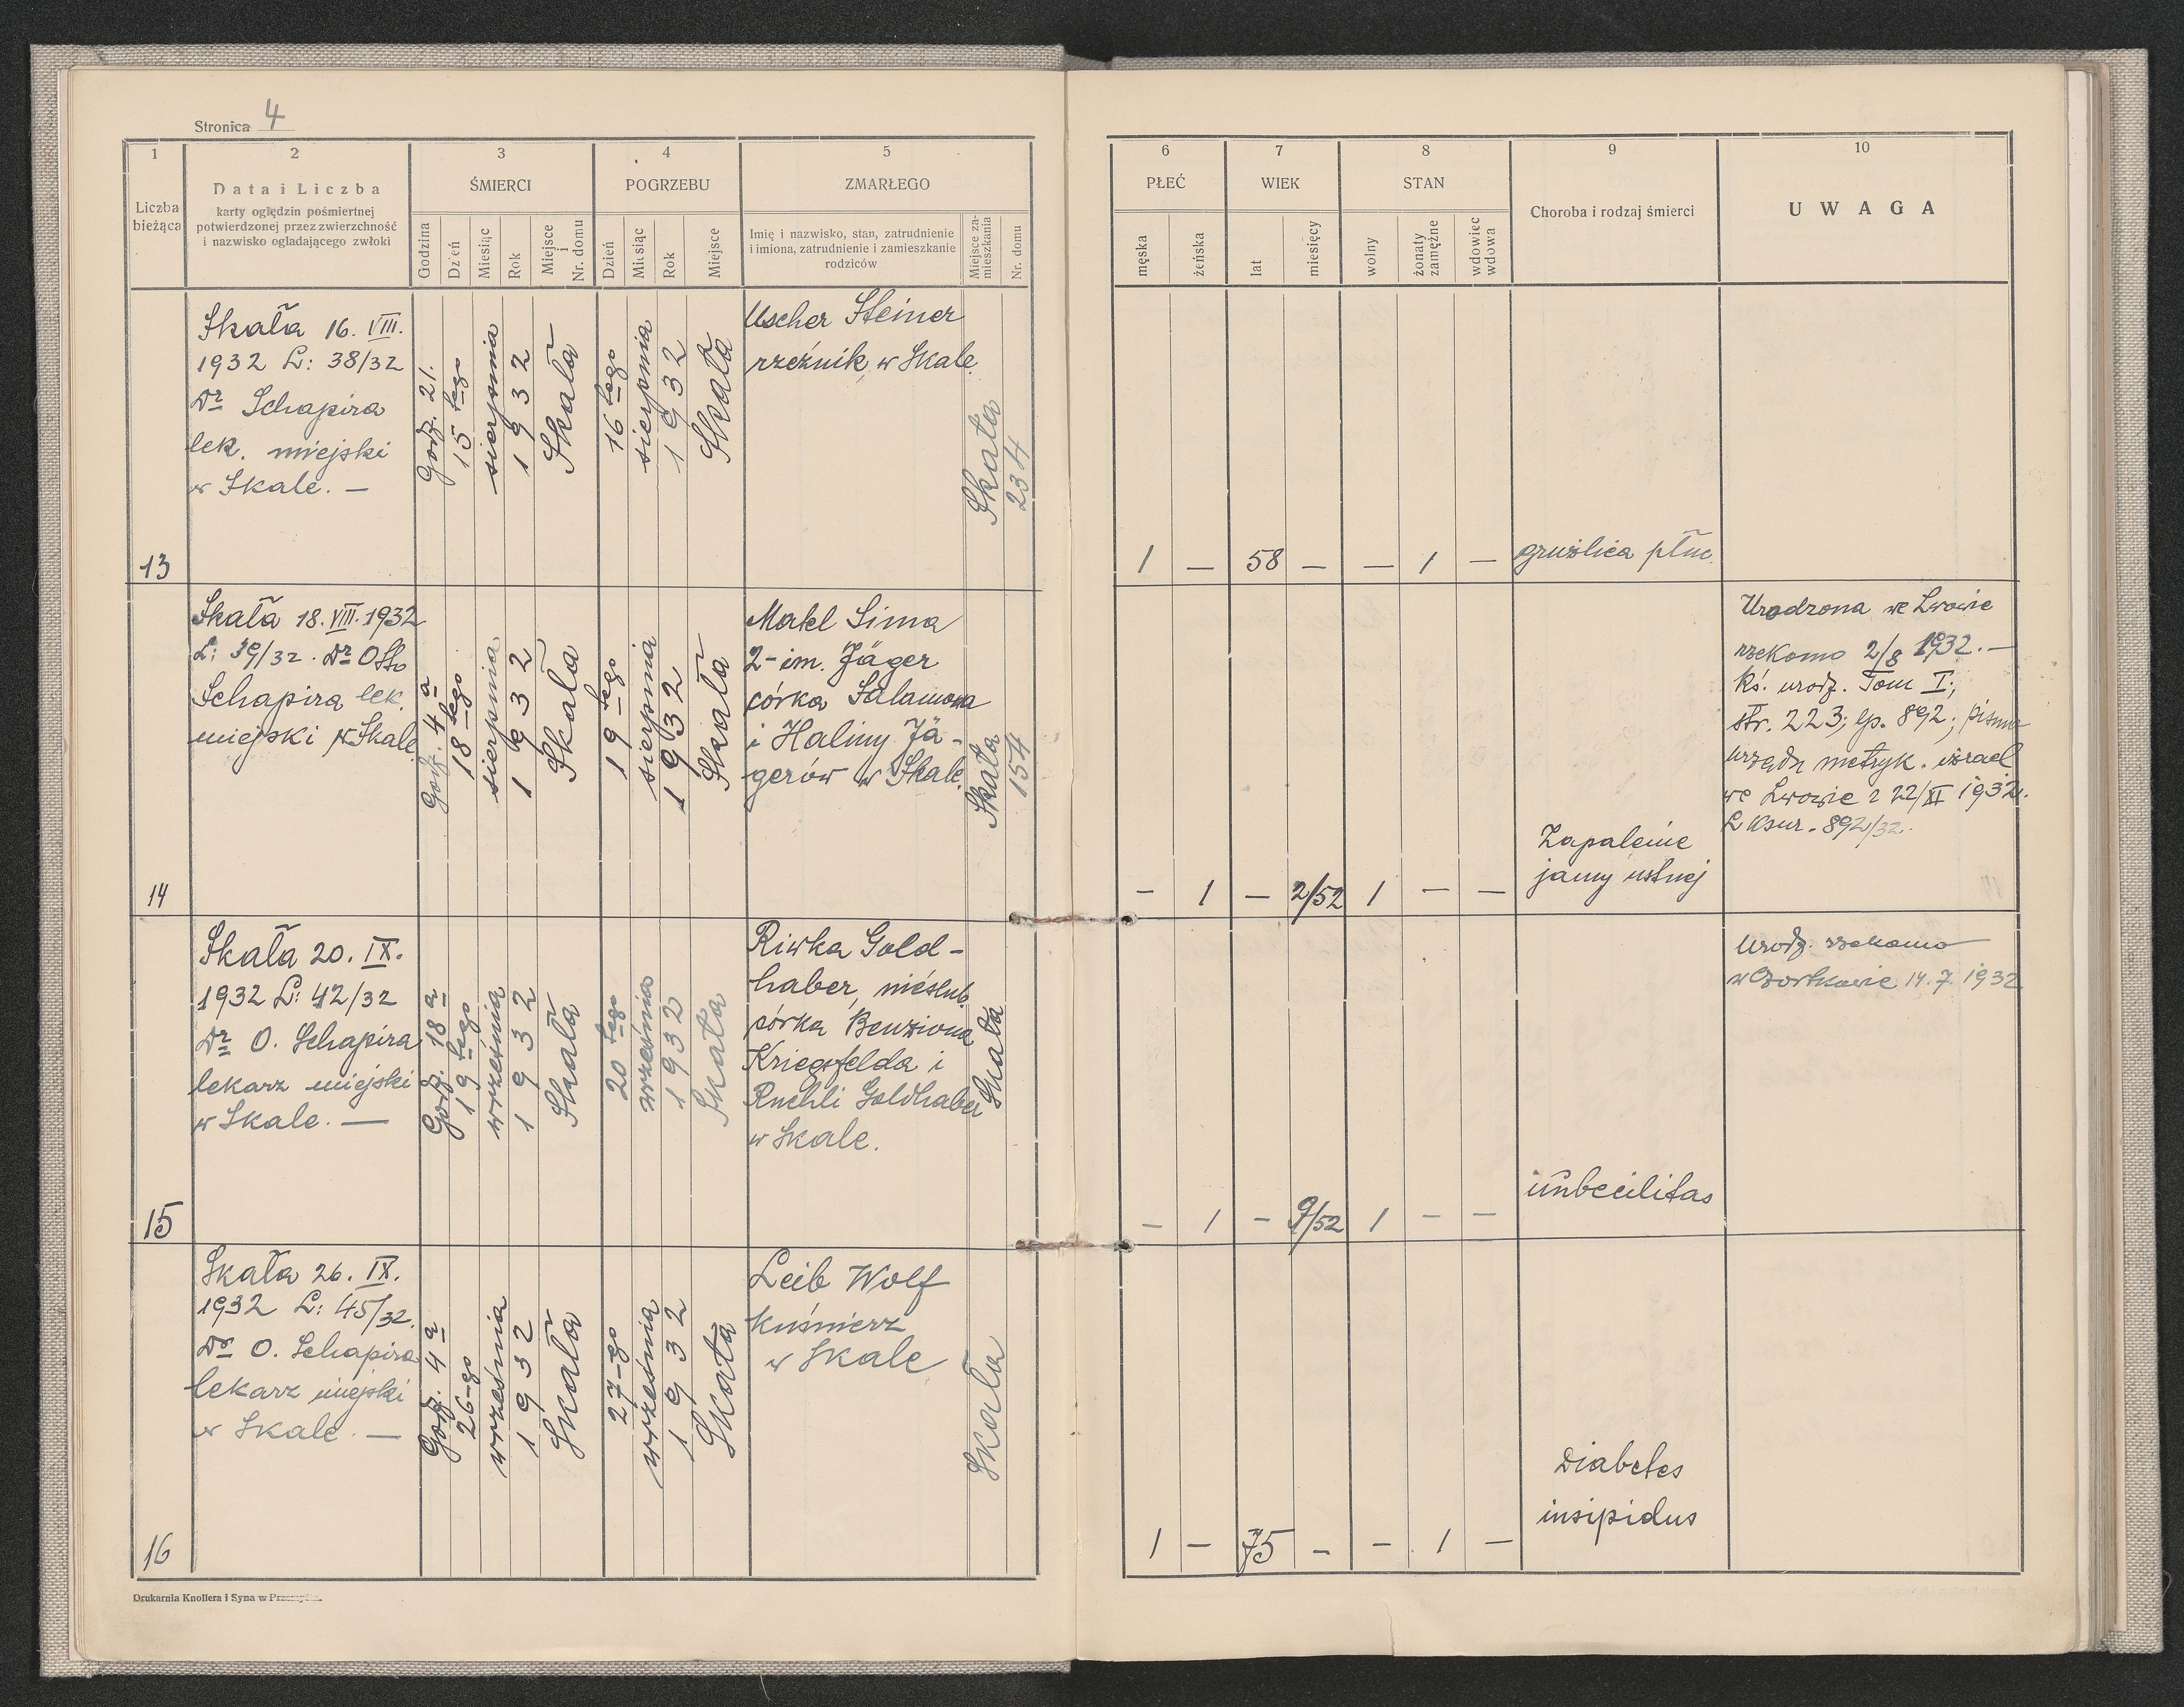 Stronica 4
1
2
3
4
5
6
7
8
9
10
Liczba
bieżąca
Data i Liczba
karty oględzin pośmiertnej
potwierdzonej przez zwierzchność
i nazwisko ogladającego zwłoki
ŚMIERCI
Godzina
Dzień
Miesiąc
Rok
Miejsce
i
Nr. domu
POGRZEBU
Dzień
Miesiąc
Rok
Miejsce
ZMARŁEGO
Imię i nazwisko, stan, zatrudnienie
i imiona, zatrudnienie i zamieszkanie
rodziców
Miejsce za-
mieszkania
Nr. domu
PŁEĆ
męska
żeńska
WIEK
lat
miesięcy
STAN
wolny
żonaty
zamężne
wdowiec
wdowa
Choroba i rodzaj śmierci
UWAGA
13
Skała 16. VIII.
1932 L: 38/32
Dr Schapira
lek. miejski
w Skale. —
Godz. 21.
15 tego
sierpnia
1932
Skała
16 tego
sierpnia
1932
Skała
Uscher Steiner
rzeźnik, w Skale.
Skała
234
1
—
58
—
—
1
—
gruźlica płuc.
14
Skała 18. VIII. 1932
L: 39/32. Dr Otto
Schapira lek.
miejski w Skale.
Godz. 4 a
18 tego
sierpnia
1932
Skała
19 tego
sierpnia
1932
Skała
Makl Sima
2-im. Jäger
córka Salamona
i Haliny Jä-
gerów w Skale.
Skała
154
—
1
—
2/52
1
—
—
Zapalenie
jamy ustnej
Urodzona we Lwowie
rzekomo 2/8 1932. —
Ks. urodz. Tom I;
str. 223; lp. 892; pismo
urzędu metryk. izrael
we Lwowie z 22/XI 1932.
L Ksur. 892/32.
15
Skała 20. IX.
1932 L: 42/32
Dr O. Schapira
lekarz miejski
w Skale. —
Godz. 18 a
19 tego
września
1932
Skała
20 tego
września
1932
Skała
Riwka Gold-
haber, nieślub.
córka Benziona
Kriegsfelda i
Ruchli Goldhaber
w Skale.
Skała
—
1
—
9/52
1
—
—
imbecilitas
Urodz. rzekomo
w Czortkowie 14. 7. 1932
16
Skała 26. IX.
1932 L: 45/32.
Dr O. Schapira
lekarz miejski
w Skale. —
Godz. 4 a
26-go
września
1932
Skała
27-go
września
1932
Skała
Leib Wolf
kuśnierz
w Skale
Skała
1
—
75
—
—
1
—
Diabetes
insipidus
Drukarnia Knollera i Syna w